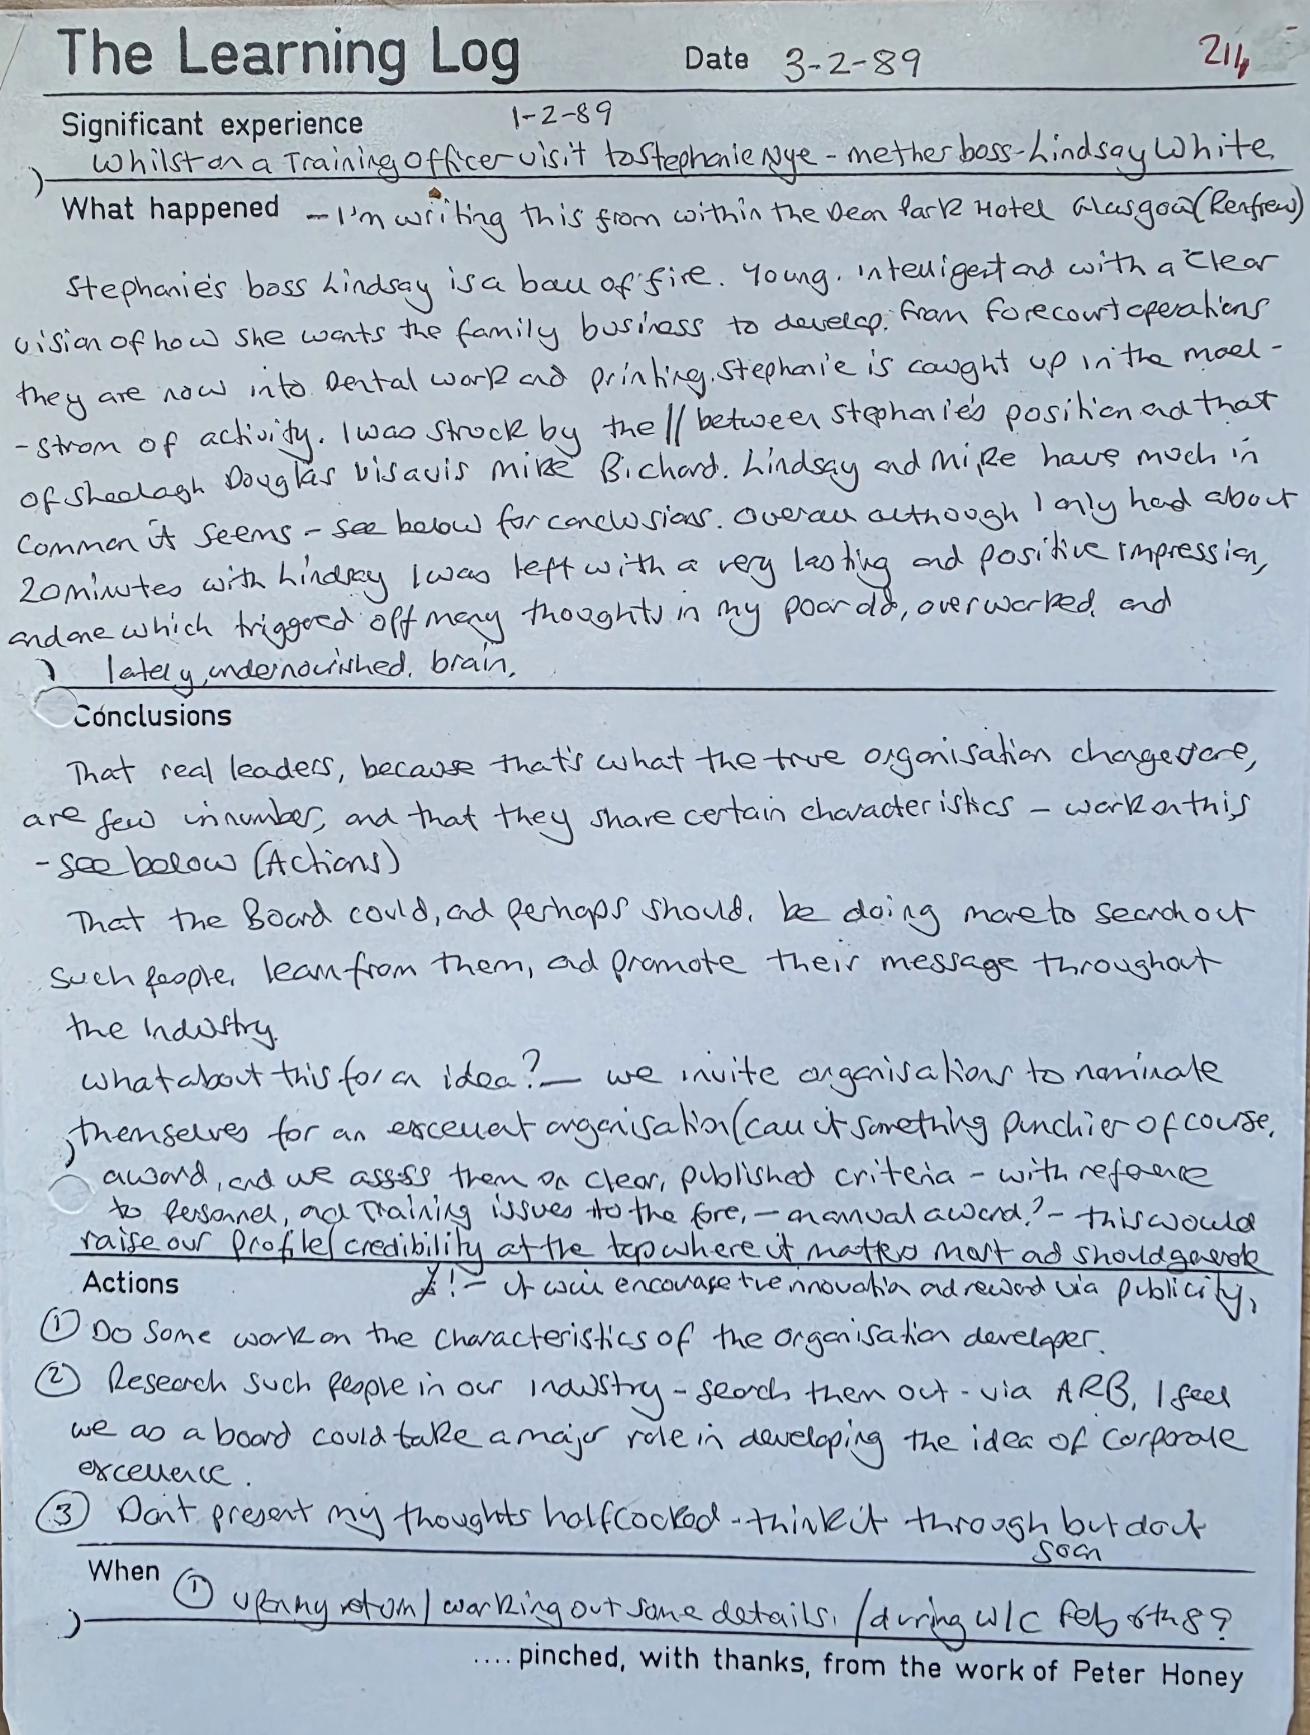 The Learning Log Date 3-2-89 214
Significant experience 1-2-89
Whilst on a Training Officer visit to Stephanie Nye - met her boss - Lindsay White.
What happened - I'm writing this from within the Dean Park Hotel Glasgow (Renfrew)
Stephanie's boss Lindsay is a ball of fire. Young. intelligent and with a clear
vision of how she wants the family business to develop. From forecourt operations
they are now into Dental work and printing. Stephanie is caught up in the mael-
-strom of activity. I was struck by the // between Stephanie's position and that
of Sheelagh Douglas vis a vis Mike Bichard. Lindsay and Mike have much in
common it seems - see below for conclusions. Overall although I only had about
20 minutes with Lindsay I was left with a very lasting and positive impression,
and one which triggered off many thoughts in my poor old, overworked, and
lately, undernourished, brain.
Conclusions
That real leaders, because that's what the true organisation changers are,
are few in number, and that they share certain characteristics - work on this
- see below (Actions)
That the Board could, and perhaps should, be doing more to search out
such people, learn from them, and promote their message throughout
the industry.
What about this for an idea? - we invite organisations to nominate
themselves for an excellent organisation (call it something punchier of course,
award, and we assess them on clear, published criteria - with reference
to Personnel, and Training issues to the fore, - an annual award? - this would
raise our profile/credibility at the top where it matters most and should generate
£! - it will encourage innovation and reward via publicity,
Actions
① Do some work on the characteristics of the organisation developer.
② Research such people in our industry - search them out - via ARB, I feel
we as a board could take a major role in developing the idea of corporate
excellence.
③ Don't present my thoughts halfcocked - think it through but do it
soon
When ① Upon my return / working out some details. / during W/C Feb 6th 89
.... pinched, with thanks, from the work of Peter Honey